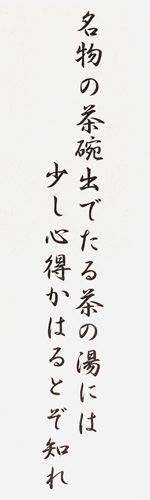 名物の茶碗出でたる茶の湯には
少し心得かはるとぞ知れ